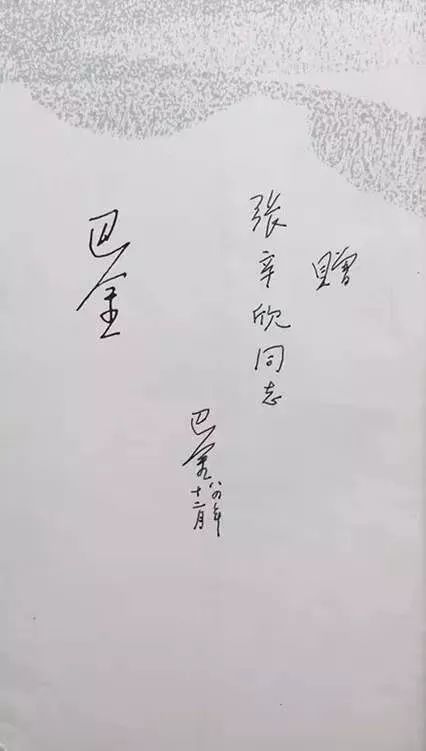 贈
張辛欣同志
巴金
八四年
十二月
巴金